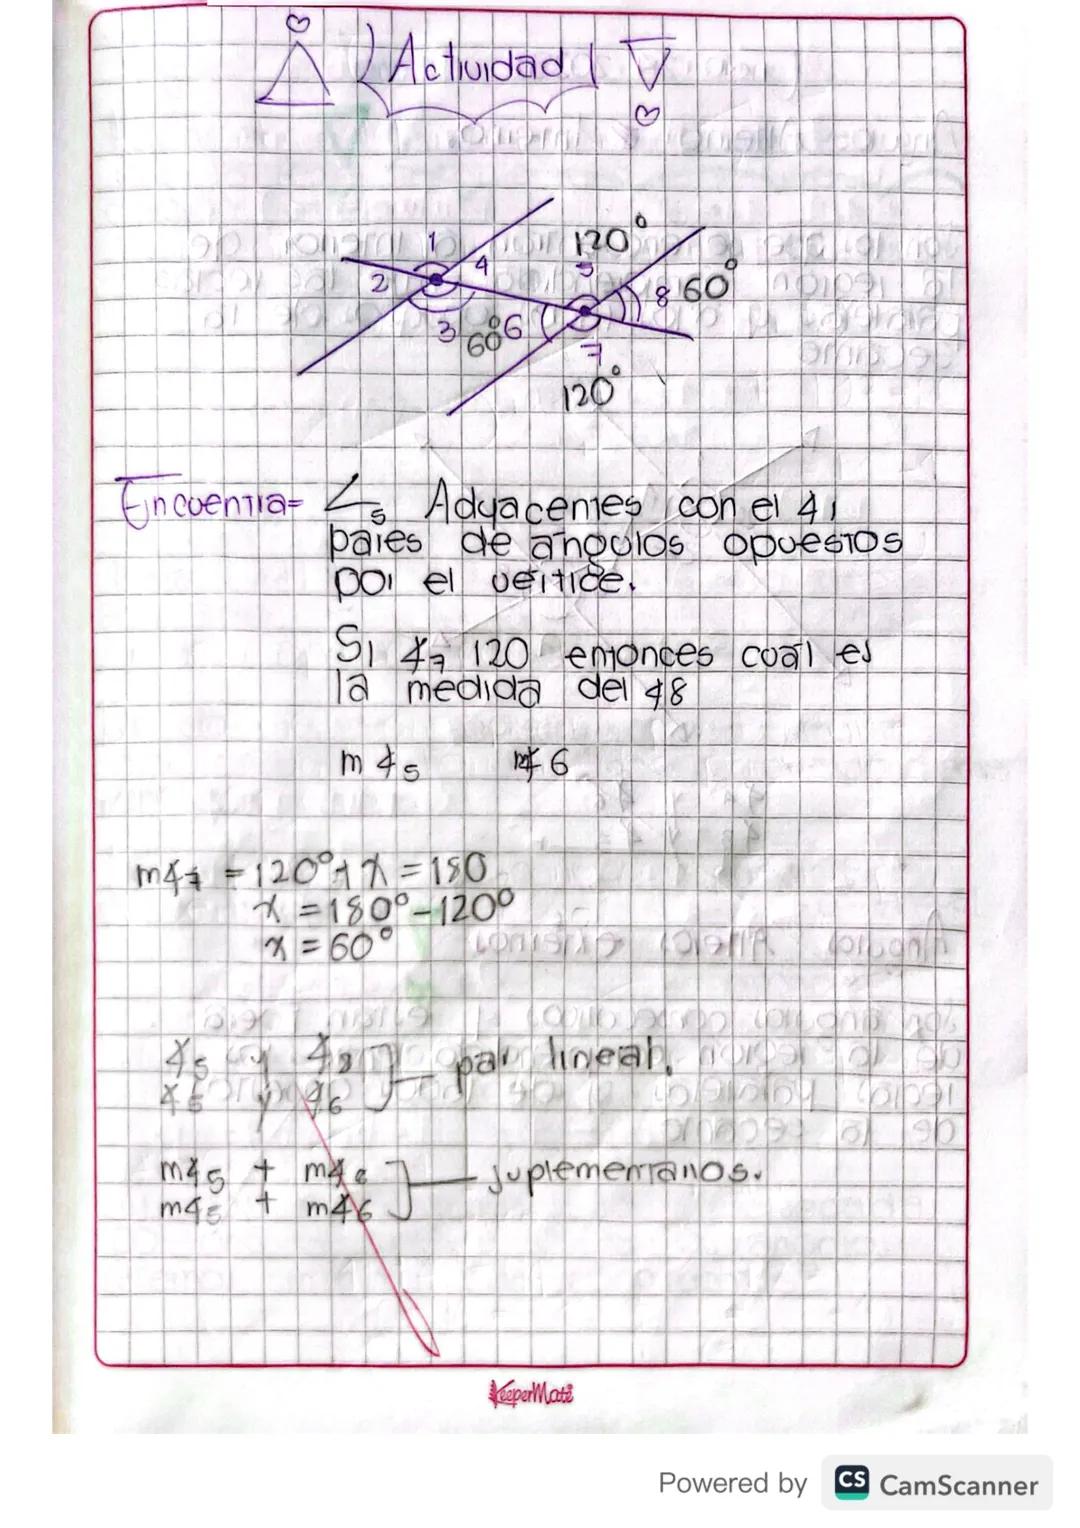 Actividad 1
1
2
4
3
120°
5
8 60°
60° 6
7
120°
Encuentra= ∠5 Adyacentes con el ∡1
pares de ángulos opuestos
por el vértice.
Si ∡7 120 entonces cuál es
la medida del ∡8
m∡5 m∡6
m∡7 = 120° + x = 180
x = 180° - 120°
x = 60°
∡5 y ∡8
∡5 y ∡6
par lineal.
m∡5 + m∡8
m∡5 + m∡6
suplementarios.
KeeperMate
Powered by CS CamScanner